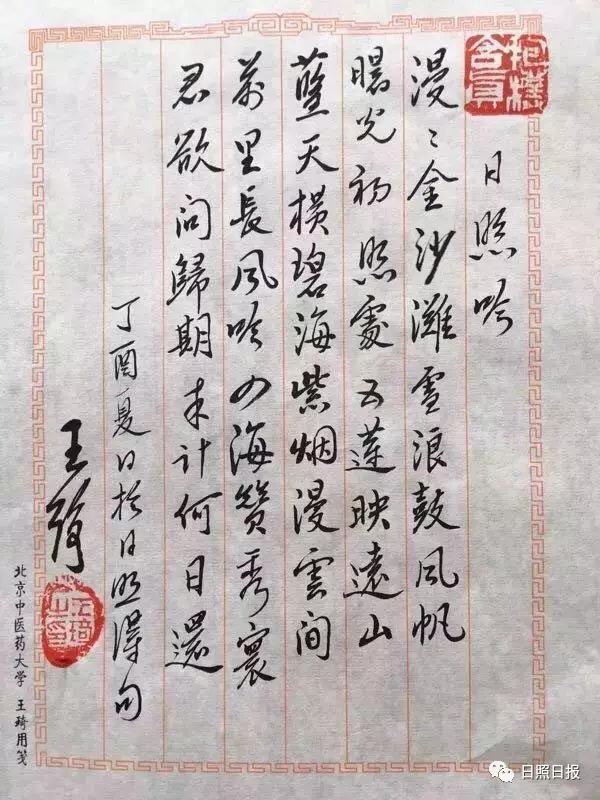 抱樸含真
日照吟
漫〻金沙灘雪浪鼓風帆
曙光初照處五蓮映遠山
藍天横碧海紫烟漫雲间
萬里長風吟四海贊秀寰
君欲问歸期未计何日還
丁酉夏日於日照得句
王琦
王琦之印
北京中医药大学 王琦用笺
日照日报